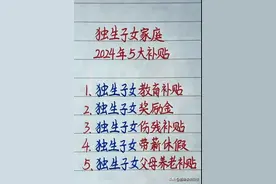 独生子女家庭
2024年5大补贴
1. 独生子女教育补贴
2. 独生子女奖励金
3. 独生子女伤残补贴
4. 独生子女带薪休假
5. 独生子女父母养老补贴